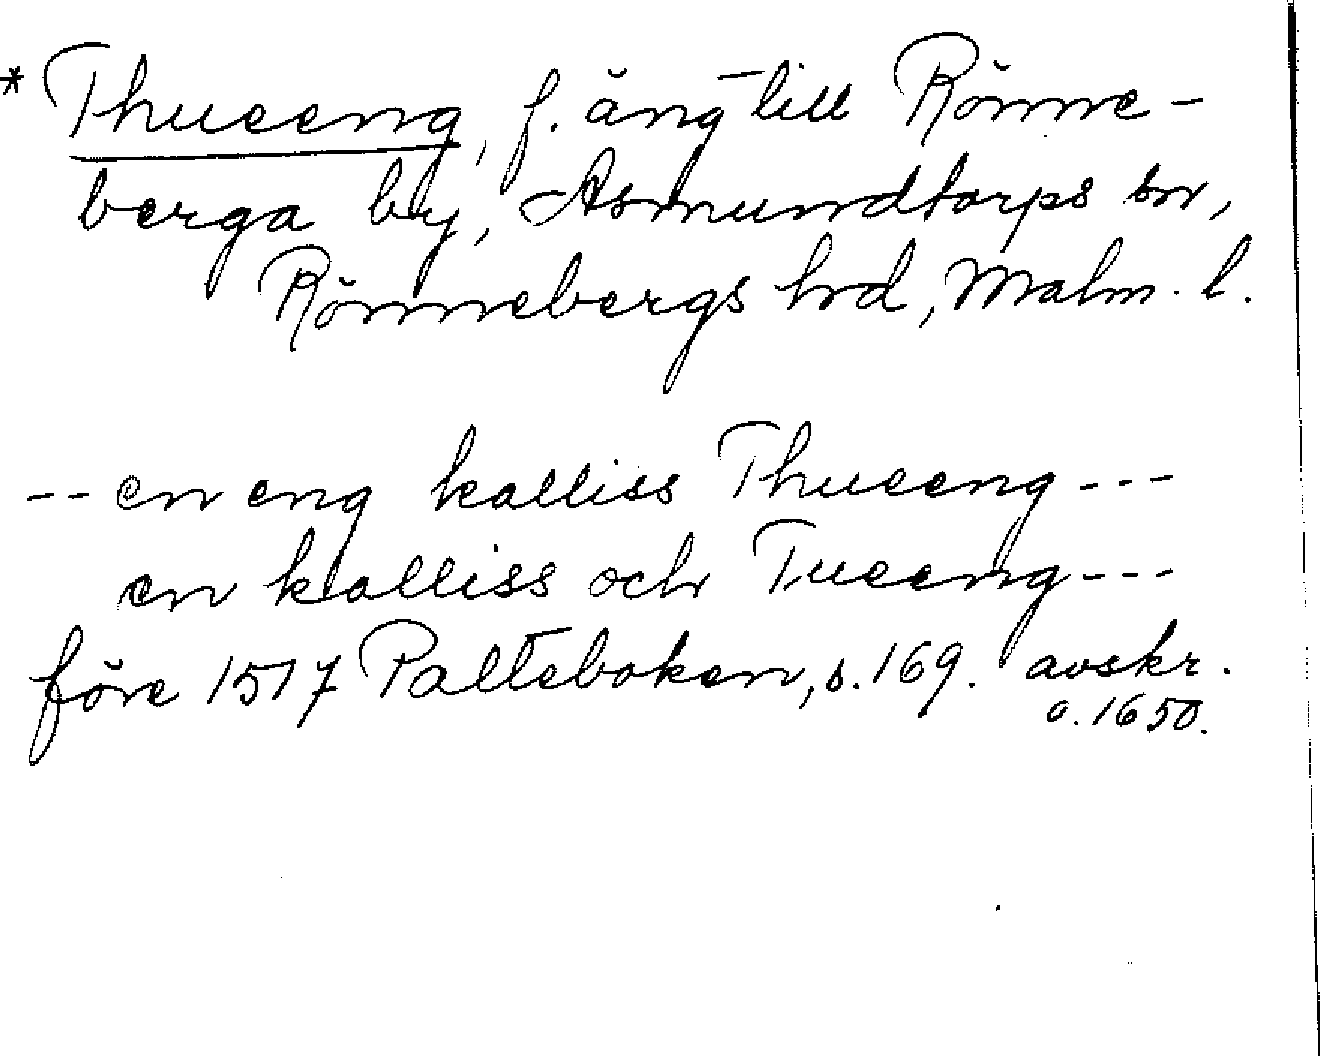 * Thueeng, f. äng till Rönne-
berga by, Asmundtorps sn,
Rönnebergs hrd, Malm. l.
-- en eng kalliss Thueeng ---
en kalliss och Tueeng ---
före 1517 Palteboken, s. 169. avskr.
o. 1650.